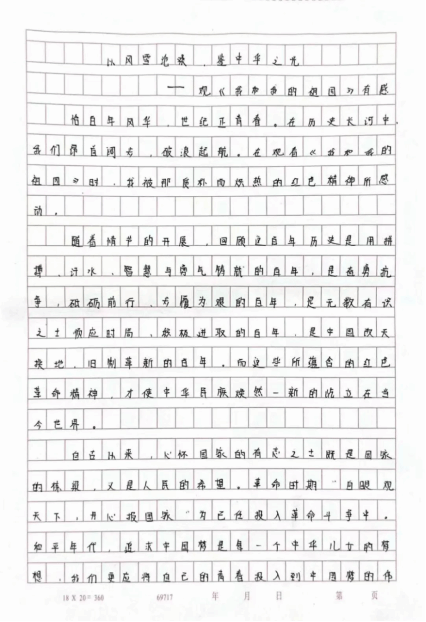 从风雪绝境,鉴中华之光
——观《我和我的祖国》有感
恰百年风华,世纪正青春。在历史长河中,
我们昂首阔步,破浪起航。在观看《我和我的
祖国》时,我被那质朴而炽热的红色精神所感
动。
随着情节的开展,回顾这百年历史是用拼
搏、汗水、智慧与勇气铸就的百年,是奋勇抗
争,砥砺前行,方履为艰的百年,是无数有识
之士顺应时局,积极进取的百年,是中国改天
换地,旧制革新的百年。而这些所蕴含的红色
革命精神,才使中华民族焕然一新的屹立在当
今世界。
自古以来,心怀国家的有志之士既是国家
的栋梁,又是人民的希望。革命时期“白眼观
天下,丹心报国家”为己任投入革命斗争中。
和平年代,追求中国梦是每一个中华儿女的梦
想,我们更应将自己的青春投入到中国梦的伟
18×20=360 69717 年 月 日 第 页